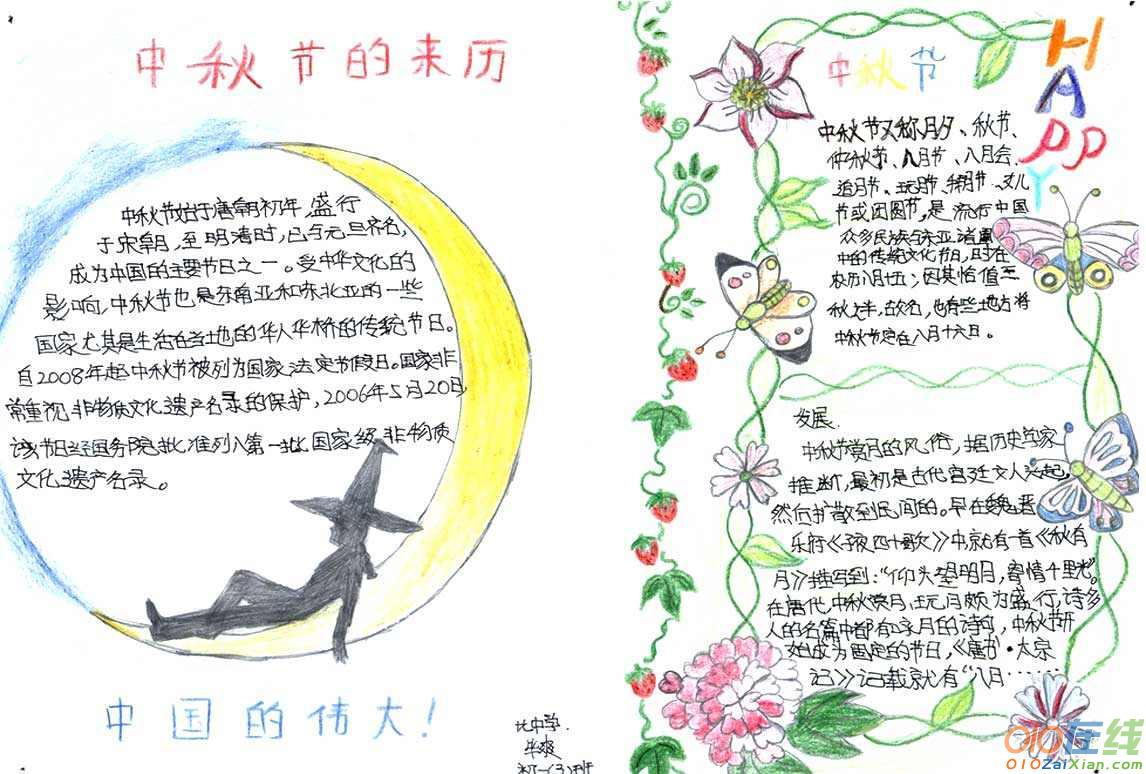 中秋节的来历
中秋节始于唐朝初年,盛行
于宋朝,至明清时,已与元旦齐名,
成为中国的主要节日之一。受中华文化的
影响,中秋节也是东南亚和东北亚的一些
国家尤其是生活在当地的华人华桥的传统节日。
自2008年起中秋节被列为国家法定节假日。国家非
常重视非物质文化遗产名录的保护,2006年5月20日,
该节日经国务院批准列入第一批国家级非物质
文化遗产名录。
中国的伟大!
初一(3)班
中秋节
HAPPY
中秋节又称月夕、秋节、
仲秋节、八月节、八月会、
追月节、玩月节、拜月节、女儿
节或团圆节,是流行中国
众多民族与东亚诸国
中的传统文化节日,时在
农历八月十五;因其恰值三
秋之半,故名,也有些地方将
中秋节定在八月十六日。
发展.
中秋节赏月的风俗,据历史学家
推断,最初是古代宫廷文人兴起,
然后扩散到民间的。早在魏晋
乐府《子夜四十歌》中就有一首《秋有
月》描写到:“仰头望明月,寄情千里光”。
在唐代,中秋赏月、玩月颇为盛行,诗多
人的名篇中都有咏月的诗句,中秋节开
始成为固定的节日,《唐书·太宗
记》记载就有“八月……
010在线
010ZaiXian.com